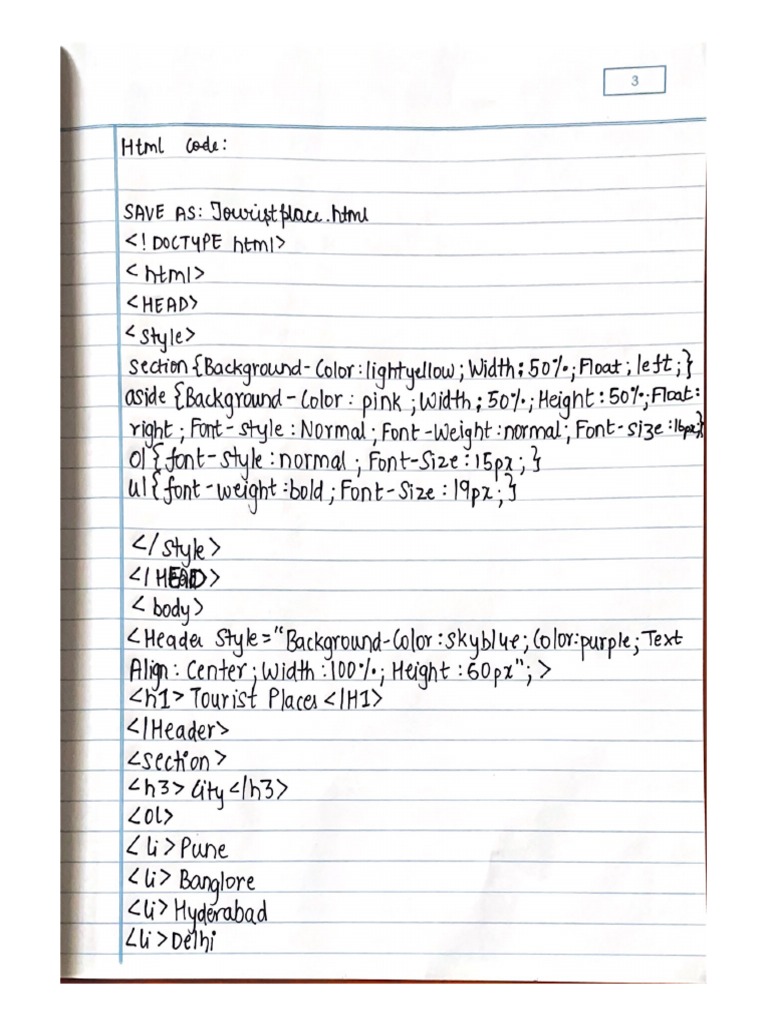 3
Html code:
SAVE AS: Touristplace.html
<!DOCTYPE html>
<html>
<HEAD>
<style>
section{Background-Color:lightyellow; Width:50%; Float:left;}
aside {Background-Color: pink ; Width:50%; Height:50%; Float:
right ; Font-style : Normal ; Font-Weight:normal; Font-size:16px}
Ol{font-style:normal ; Font-Size:15px ; }
Ul{font-weight:bold ; Font-Size:19px ; }
</Style>
</HEAD>
<body>
<Header Style="Background-Color:skyblue; Color:purple; Text
Align: Center ; Width:100%; Height:60px"; >
<h1> Tourist Places </H1>
</Header>
<section>
<h3> City </h3>
<OL>
<Li>Pune
<Li> Banglore
<Li> Hyderabad
<Li>Delhi